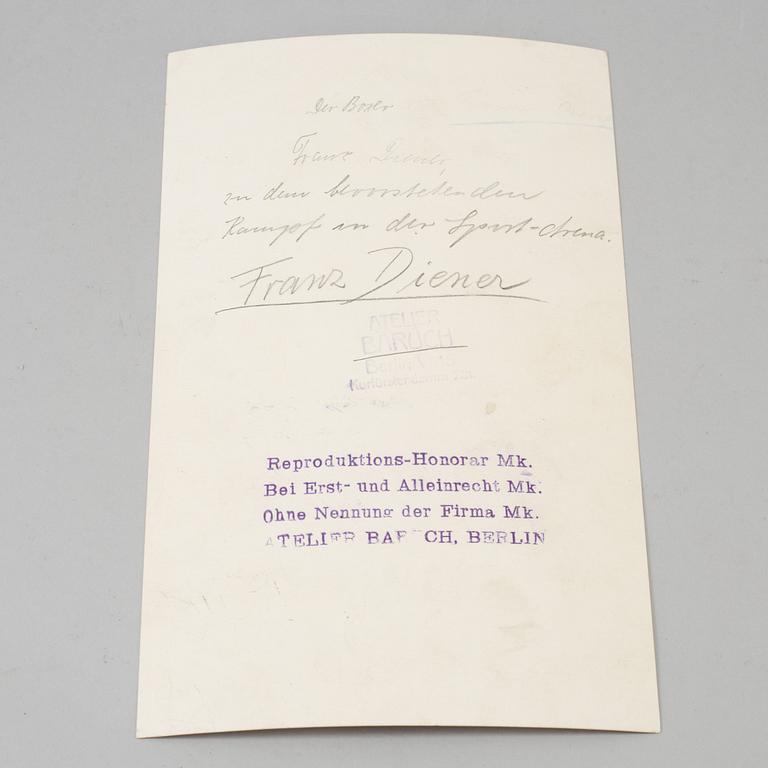 Der Boxer
Franz Diener,
zu dem bevorstehenden
Kampf in der Sport-Arena.
Franz Diener
ATELIER
BARUCH
Berlin W. 15
Kurfürstendamm
Reproduktions-Honorar Mk.
Bei Erst- und Alleinrecht Mk.
Ohne Nennung der Firma Mk.
ATELIER BARUCH, BERLIN